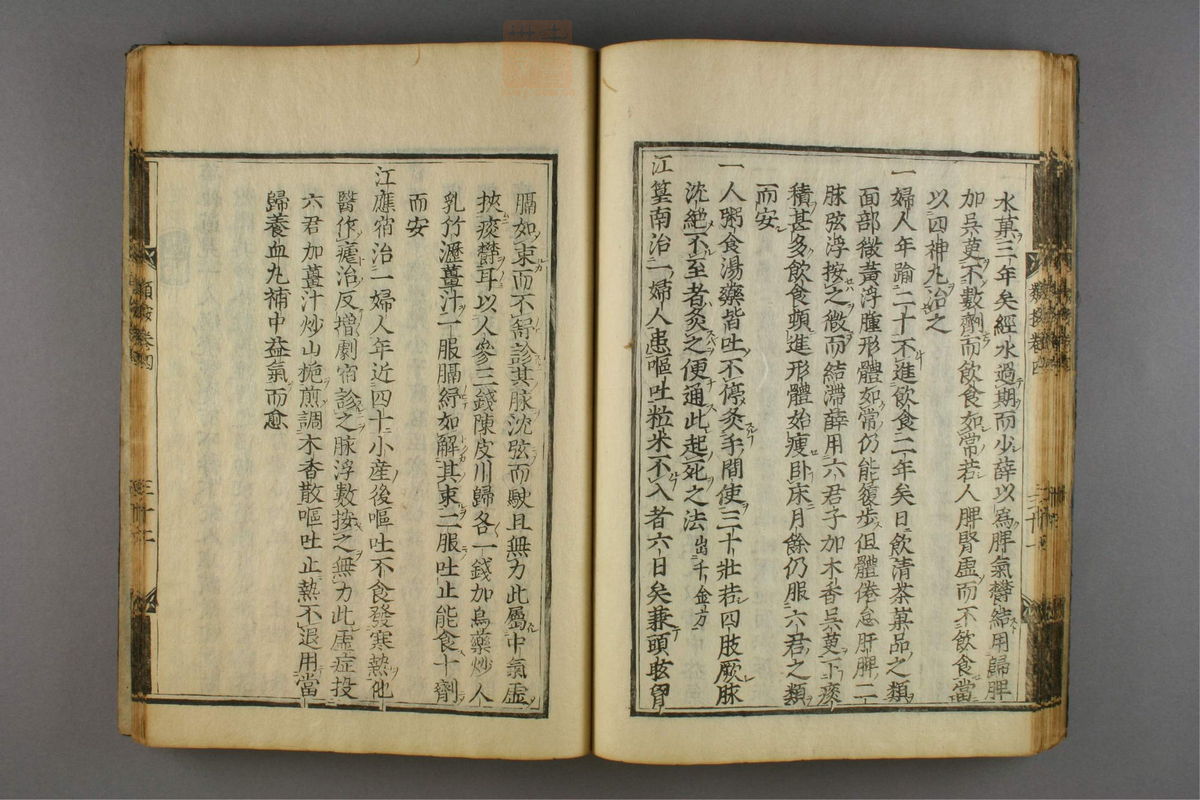 水菓三年矣經水過期而少薛以爲脾氣欝結用歸脾
加呉茰不數劑而飲食如常若人脾腎虛而不飲食當
以四神丸治之
一婦人年踰二十不進飲食二年矣日飲清茶菓品之類
面部微黃浮腫形體如常仍能履步但體倦怠肝脾二
脉弦浮按之微而結滯薛用六君子加木香呉茰下痰
積甚多飲食頓進形體始瘦卧床月餘仍服六君之類
而安
一人粥食湯藥皆吐不停灸手間使三十壯若四肢厥脉
沈絶不至者灸之便通此起死之法出千金方
江篁南治一婦人患嘔吐粒米不入者六日矣兼頭眩胷
膈如束而不舒診其脉沈弦而駛且無力此屬中氣虛
挾痰欝耳以人參三錢陳皮川歸各一錢加烏藥炒人
乳竹瀝薑汁一服膈紓如解其束二服吐止能食十劑
而安
江應宿治一婦人年近四十小産後嘔吐不食發寒熱他
醫作瘧治反增劇宿診之脉浮數按之無力此虛症投
六君加薑汁炒山梔煎調木香散嘔吐止熱不退用當
歸養血丸補中益氣而愈